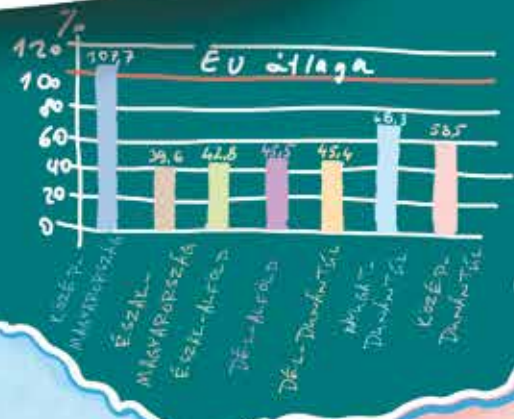 %
120
100
80
60
40
20
0
EU átlaga
107,7
39,6
42,8
45,5
45,4
68,3
58,5
KÖZÉP-
MAGYARORSZÁG
ÉSZAK-
MAGYARORSZÁG
ÉSZAK-ALFÖLD
DÉL-ALFÖLD
DÉL-DUNÁNTÚL
NYUGAT-
DUNÁNTÚL
KÖZÉP-
DUNÁNTÚL